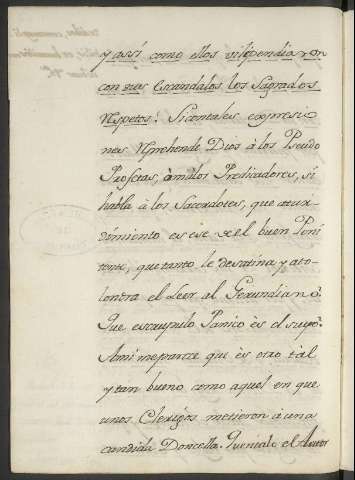 y assi como ellos vilipendiaron
con sus Escandalos los Sagrados
Respetos. Si con tales expresio
nes reprehende Dios à los Pseudo
Profetas, à malos Predicadores, si
habla à los Sacerdotes, que atur-
dimiento es ese de el buen Peni
tente, que tanto le desatina y ato-
londra el Leer al Gerundiano?
Que escrupulo Panico es el suyo?
A mi me parece que es otro tal
y tan bueno como aquel en que
unos Clerigos metieron à una
candida Doncella. Cuentale el Autor